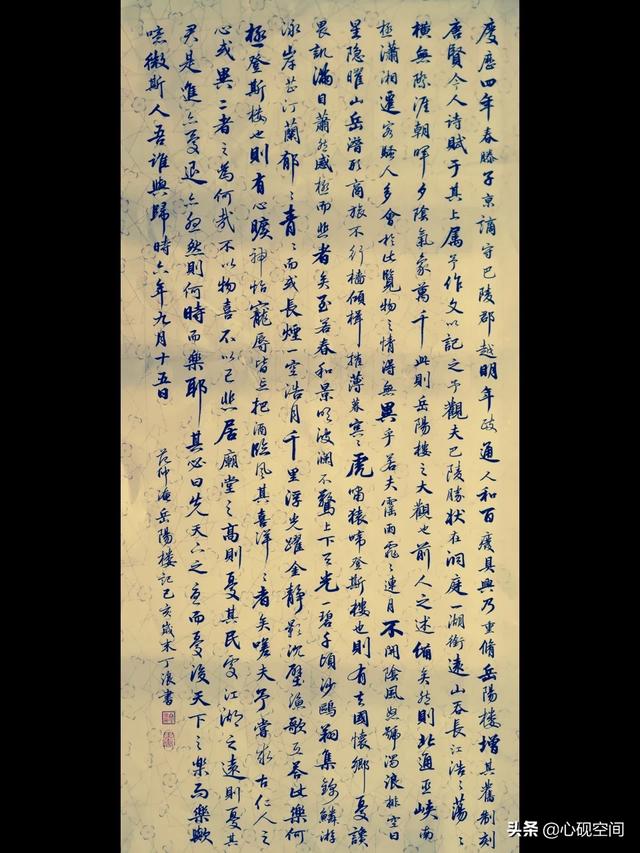 慶歷四年春滕子京謫守巴陵郡越明年政通人和百廢具興乃重脩岳陽樓增其舊制刻
唐賢今人詩賦于其上屬予作文以記之予觀夫巴陵勝狀在洞庭一湖銜遠山吞長江浩〻蕩〻
橫無際涯朝暉夕陰氣象萬千此則岳陽樓之大觀也前人之述備矣然則北通巫峽南
極瀟湘遷客騷人多會於此覽物之情得無異乎若夫霪雨霏〻連月不開陰風怒號濁浪排空日
星隱曜山岳潛形商旅不行檣傾楫摧薄暮冥〻虎嘯猿啼登斯樓也則有去國懷鄉憂讒
畏譏滿目蕭然感極而悲者矣至若春和景明波瀾不驚上下天光一碧千頃沙鷗翔集錦鱗游
泳岸芷汀蘭郁〻青〻而或長煙一空浩月千里浮光躍金靜影沉璧漁歌互答此樂何
極登斯樓也則有心曠神怡寵辱皆忘把酒臨風其喜洋〻者矣嗟夫予嘗求古仁人之
心或異二者之為何哉不以物喜不以己悲居廟堂之高則憂其民處江湖之遠則憂其
君是進亦憂退亦憂然則何時而樂耶其必曰先天下之憂而憂後天下之樂而樂歟
噫微斯人吾誰與歸時六年九月十五日
范仲淹岳陽樓記己亥歲末丁浪書
头条 @心砚空间